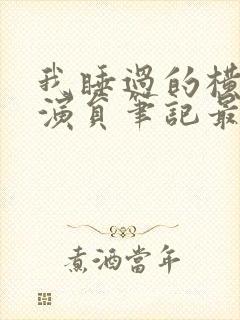 我睡過的橫
演員筆記最
煮酒當年